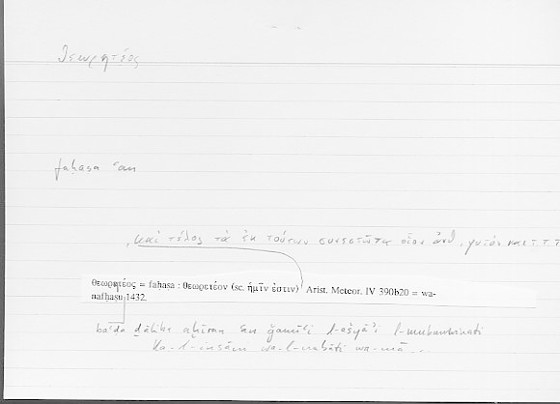 θεωρητέος
faḥaṣa ʿan
καὶ τέλος τὰ ἐκ τούτων συνεστῶτα οἷον ἄνθ. φυτόν κ. τ. τ. τ.
θεωρητέος = faḥaṣa : θεωρετέον (sc. ἡμῖν ἐστιν) Arist. Meteor. IV 390b20 = wa-
nafḥaṣu 1432.
baʿda ḏālika aḫīran ʿan ǧamīʿi l-ašyāʾi l-murakkabati
ka-l-insān wa-l-nabāti wa-mā ...